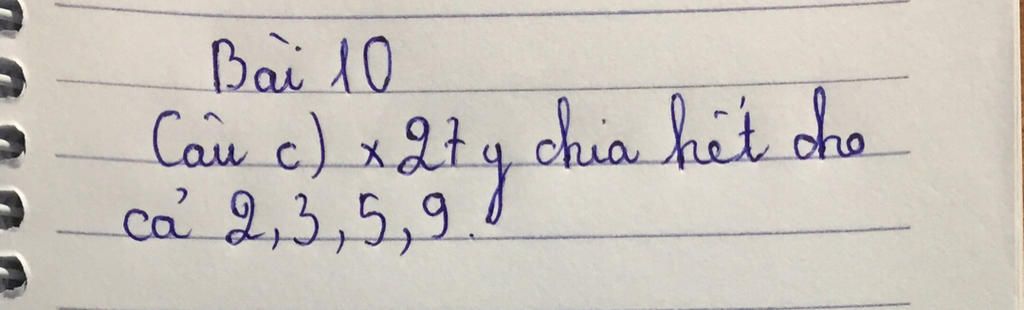 Bài 10
Câu c) x27y chia hết cho
cả 2, 3, 5, 9.